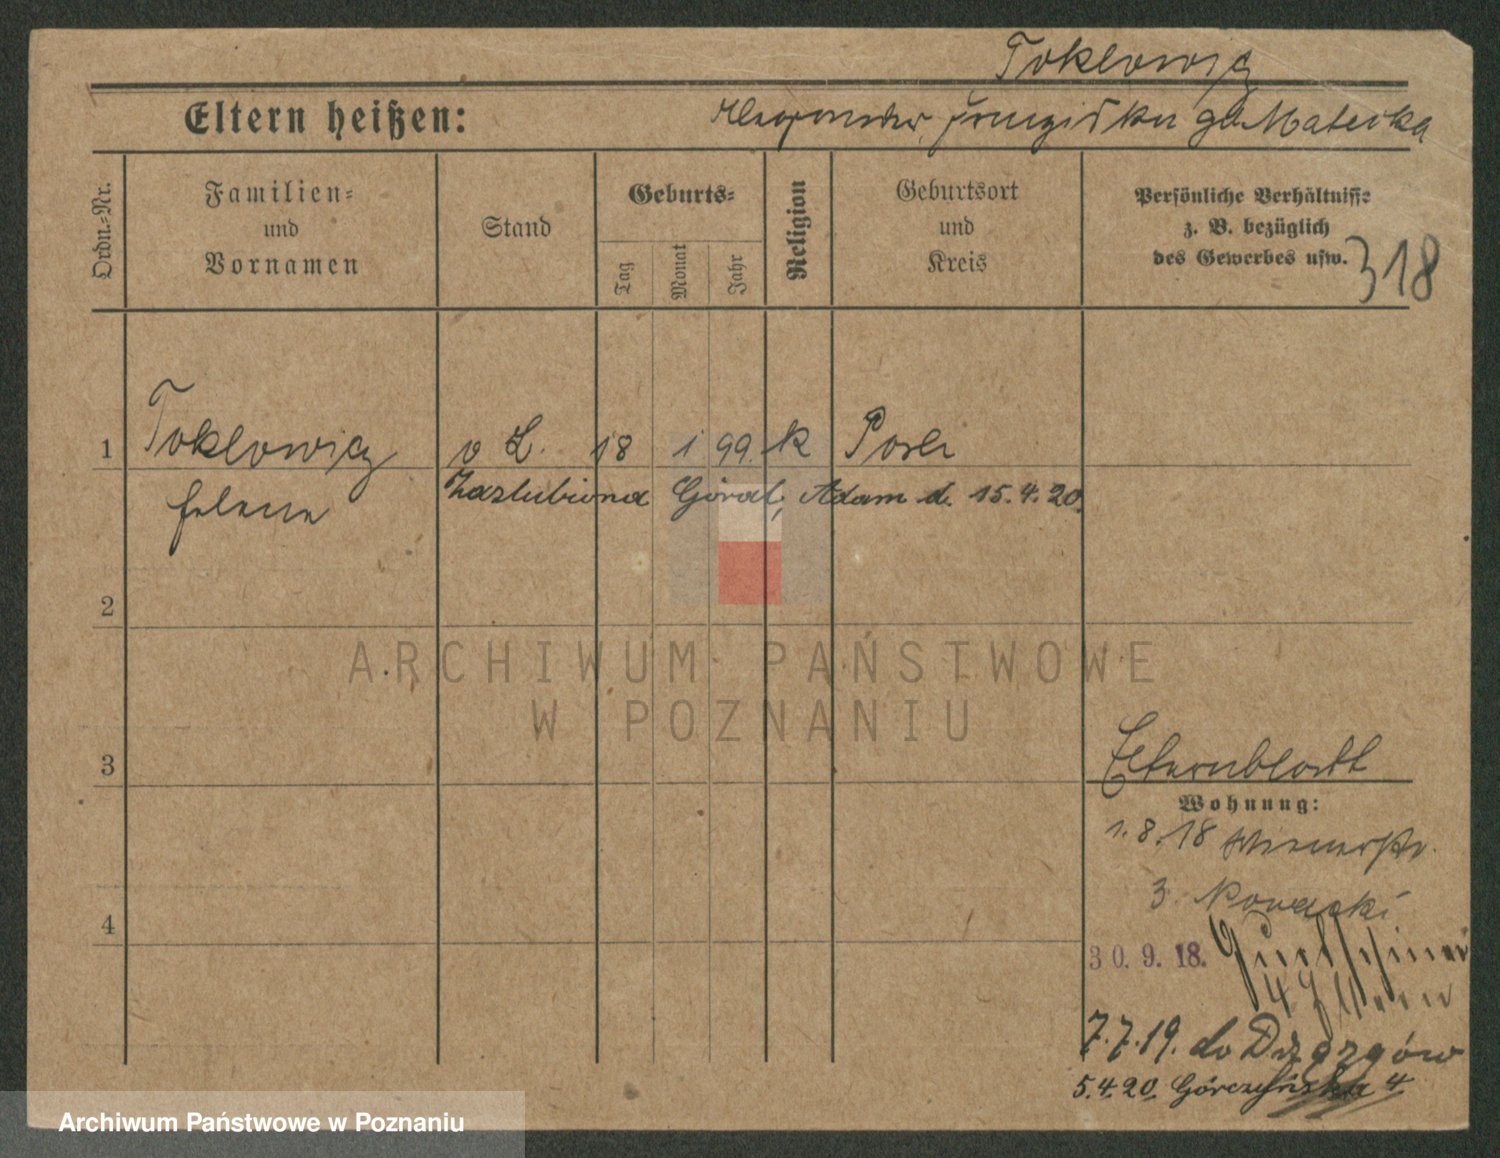 Toklowicz
Eltern heißen:
Alexander, Franziska gb Matecka
Ordn.=Nr.
Familien=
und
Vornamen
Stand
Geburts=
Tag
Monat
Jahr
Religion
Geburtsort
und
Kreis
Persönliche Verhältnisse
z. B. bezüglich
des Gewerbes usw.
318
1 Toklowicz o Z. 18 1 99. k Posen
Helene Zaslubiona Góral, Adam d. 15.4.20.
2
3
Elternblatt
Wohnung:
1.8.18
3
4
30.9.18. Gurtschiner
7.7.19. do
5.4.20. Górczyńska 4
ARCHIWUM PAŃSTWOWE
W POZNANIU
Archiwum Państwowe w Poznaniu